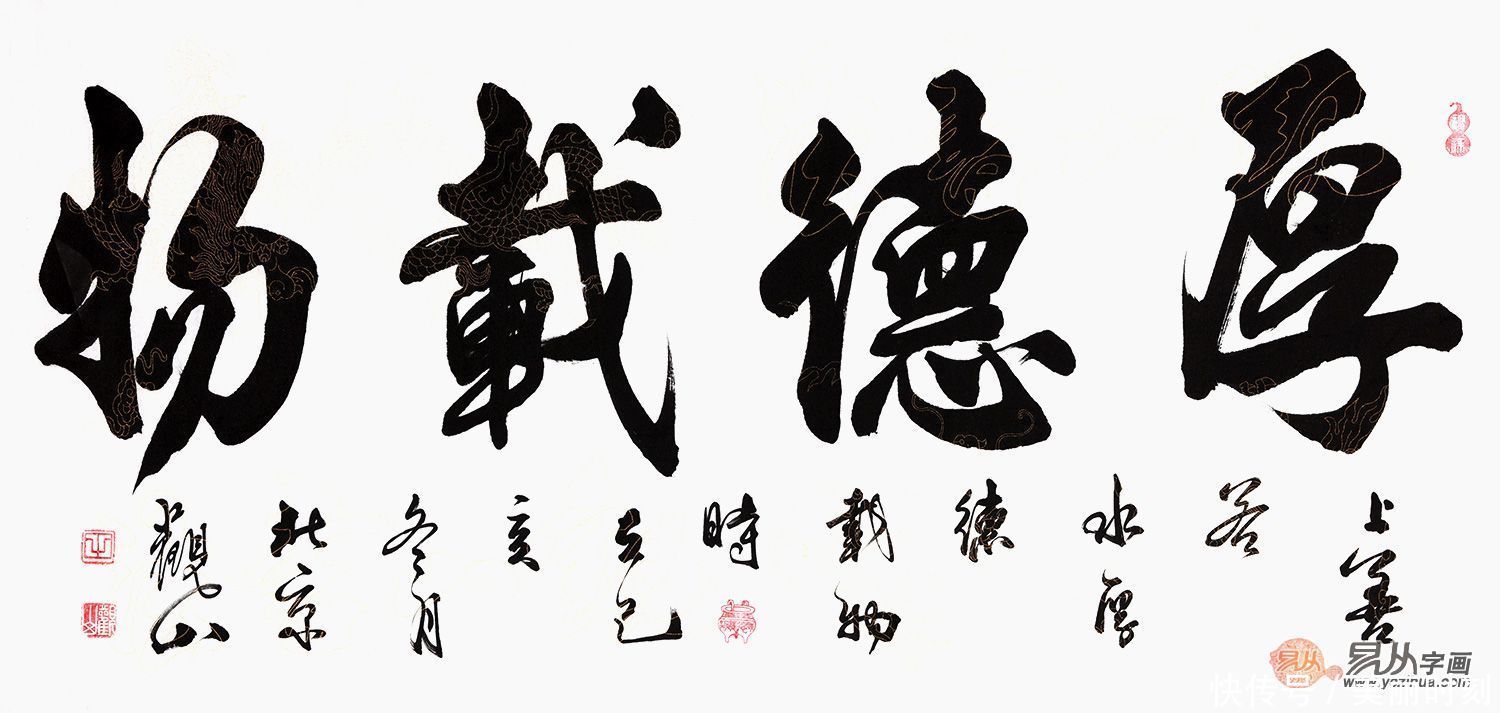 厚德載物
上善
若
水厚
德
載物
時
在己
亥
冬月
北京
觀山
易从字画
www.yczihua.com
快传号 / 美丽时刻